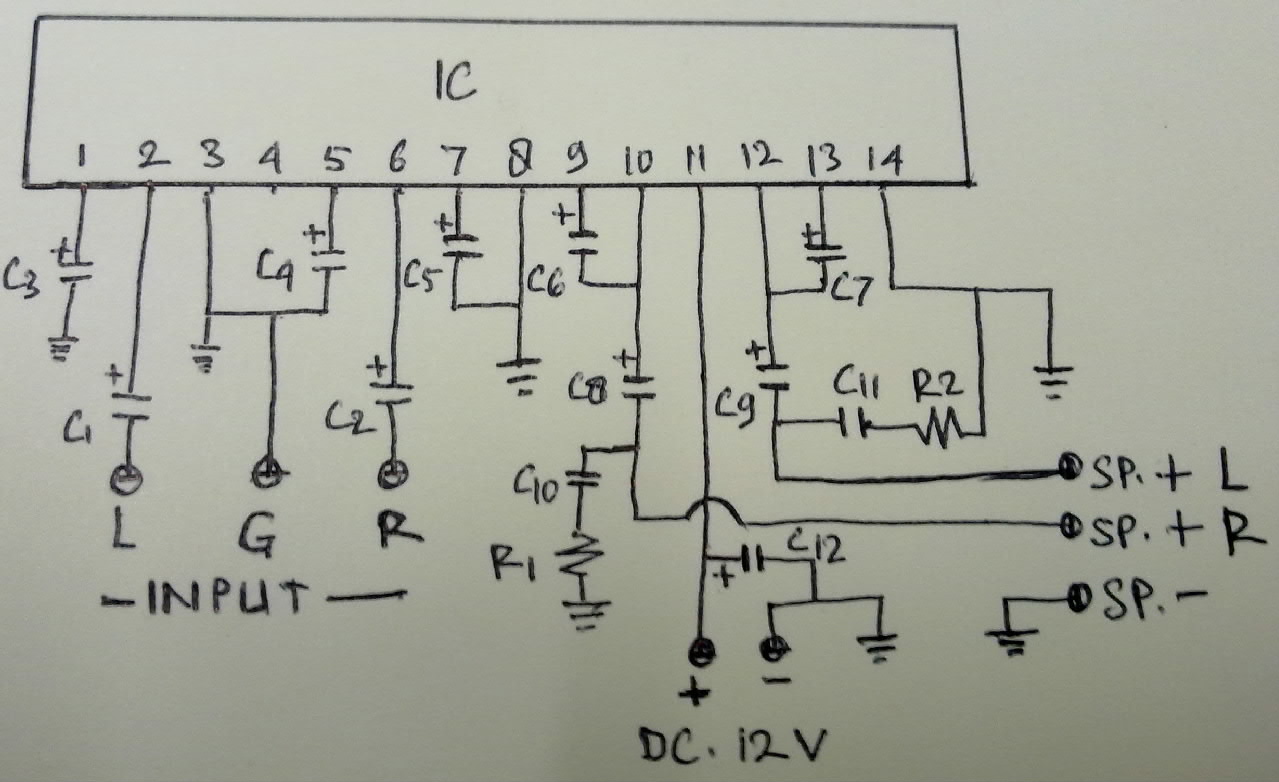 IC
1 2 3 4 5 6 7 8 9 10 11 12 13 14
+ + + + + +
C3 C4 C5 C6 C7
+ + + +
C1 C2 C8 C9 C11 R2
C10 SP. + L
L G R SP. + R
R1 + C12
- INPUT - SP. -
+ -
DC. 12V